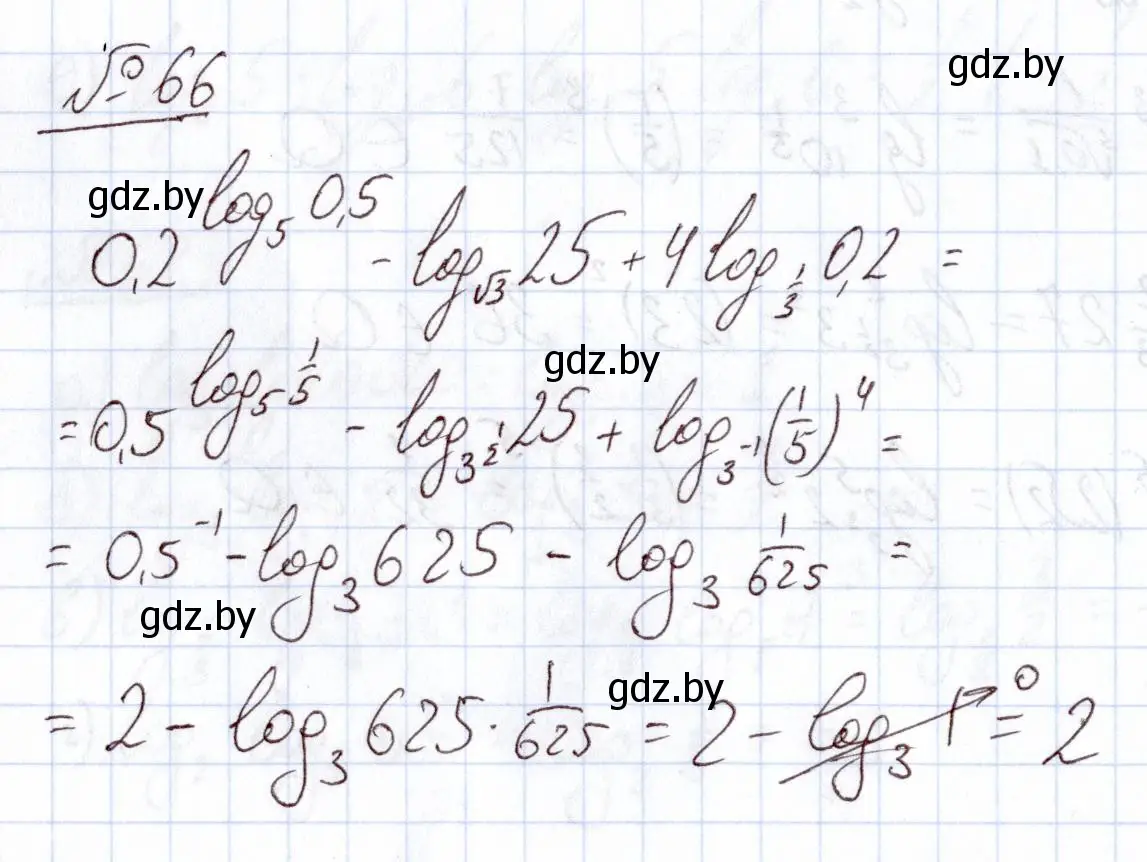 № 66
gdz.by
gdz.by
0,2^{log_5 0,5} - log_{√3} 25 + 4 log_{1/3} 0,2 =
gdz.by
= 0,5^{log_5 1/5} - log_{3^{1/2}} 25 + log_{3^{-1}} (1/5)^4 =
= 0,5^{-1} - log_3 625 - log_3 1/625 =
gdz.by
gdz.by
= 2 - log_3 625 · 1/625 = 2 - log_3 1 → 0 = 2